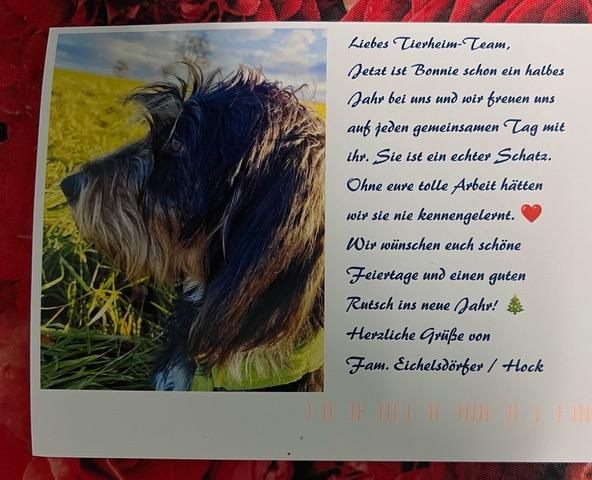 Liebes Tierheim-Team,
Jetzt ist Bonnie schon ein halbes
Jahr bei uns und wir freuen uns
auf jeden gemeinsamen Tag mit
ihr. Sie ist ein echter Schatz.
Ohne eure tolle Arbeit hätten
wir sie nie kennengelernt. ❤️
Wir wünschen euch schöne
Feiertage und einen guten
Rutsch ins neue Jahr! 🎄
Herzliche Grüße von
Fam. Eichelsdörfer / Hock